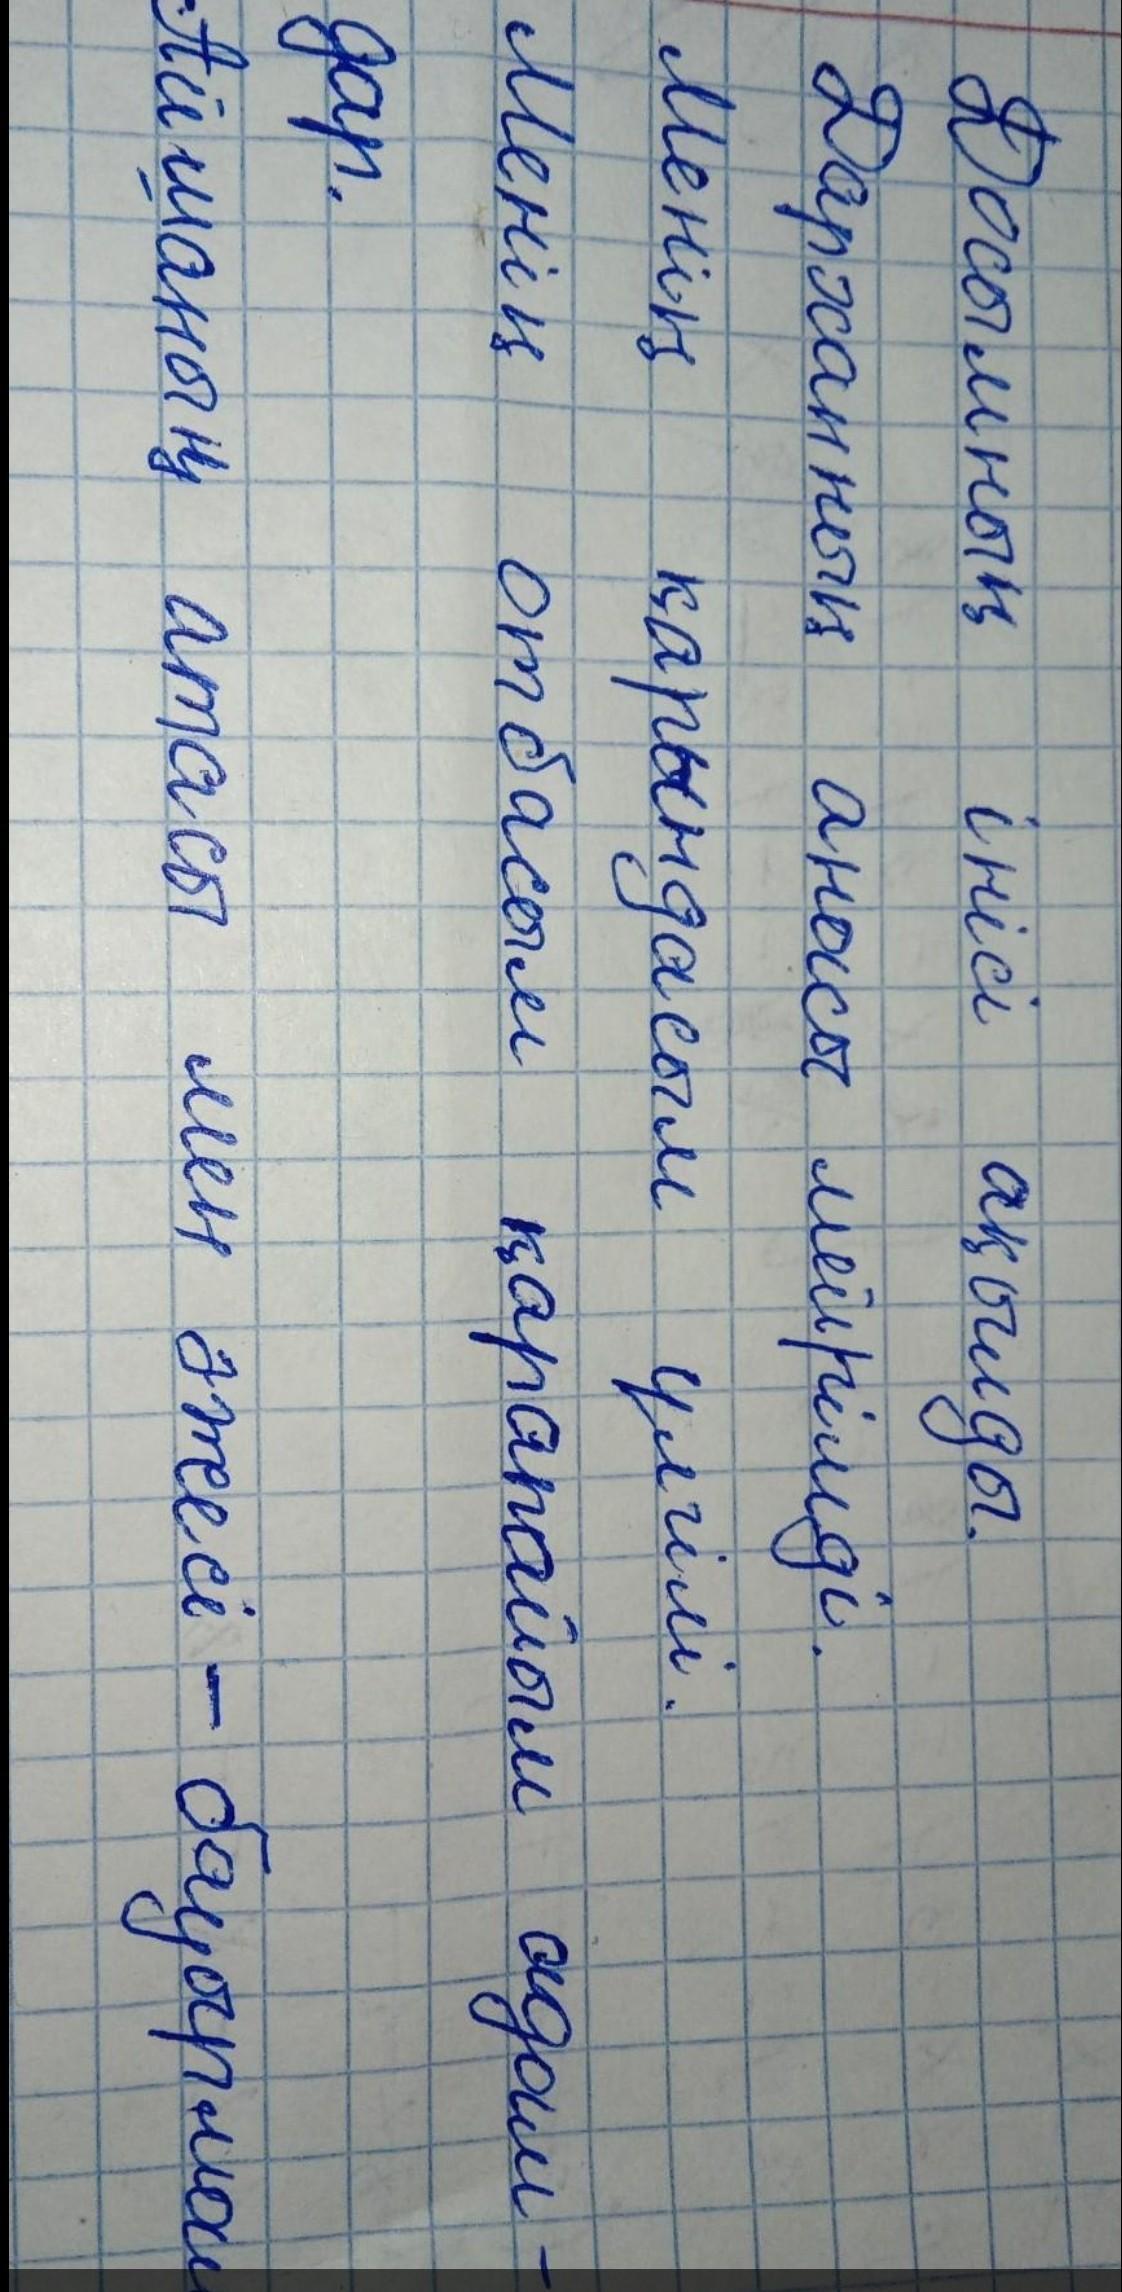 Досымның інісі ақылды.
Даржанның анасы мейірімді.
Менің қарындасым үлгілі.
Менің отбасым қарапайым адам-
дар.
Айманың атасы мен әжесі - бауырмал